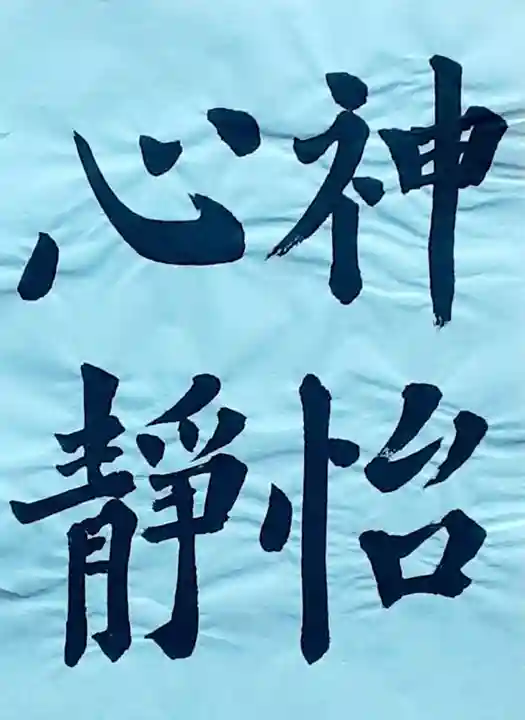 神怡
心靜